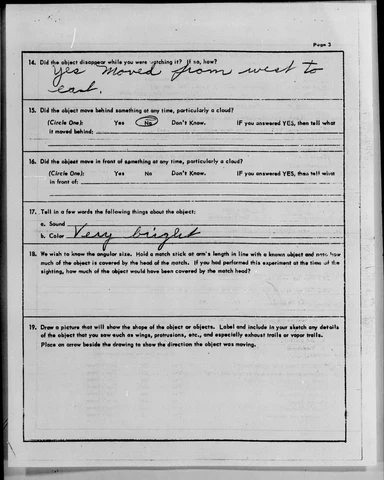 Page 3
14. Did the object disappear while you were watching it? If so, how?
Yes moved from west to
east.
15. Did the object move behind something at any time, particularly a cloud?
(Circle One): Yes No Don't Know. IF you answered YES, then tell what
it moved behind:
16. Did the object move in front of something at any time, particularly a cloud?
(Circle One): Yes No Don't Know. IF you answered YES, then tell what
in front of:
17. Tell in a few words the following things about the object:
a. Sound
b. Color Very bright
18. We wish to know the angular size. Hold a match stick at arm's length in line with a known object and note how
much of the object is covered by the head of the match. If you had performed this experiment at the time of the
sighting, how much of the object would have been covered by the match head?
19. Draw a picture that will show the shape of the object or objects. Label and include in your sketch any details
of the object that you saw such as wings, protrusions, etc., and especially exhaust trails or vapor trails.
Place an arrow beside the drawing to show the direction the object was moving.